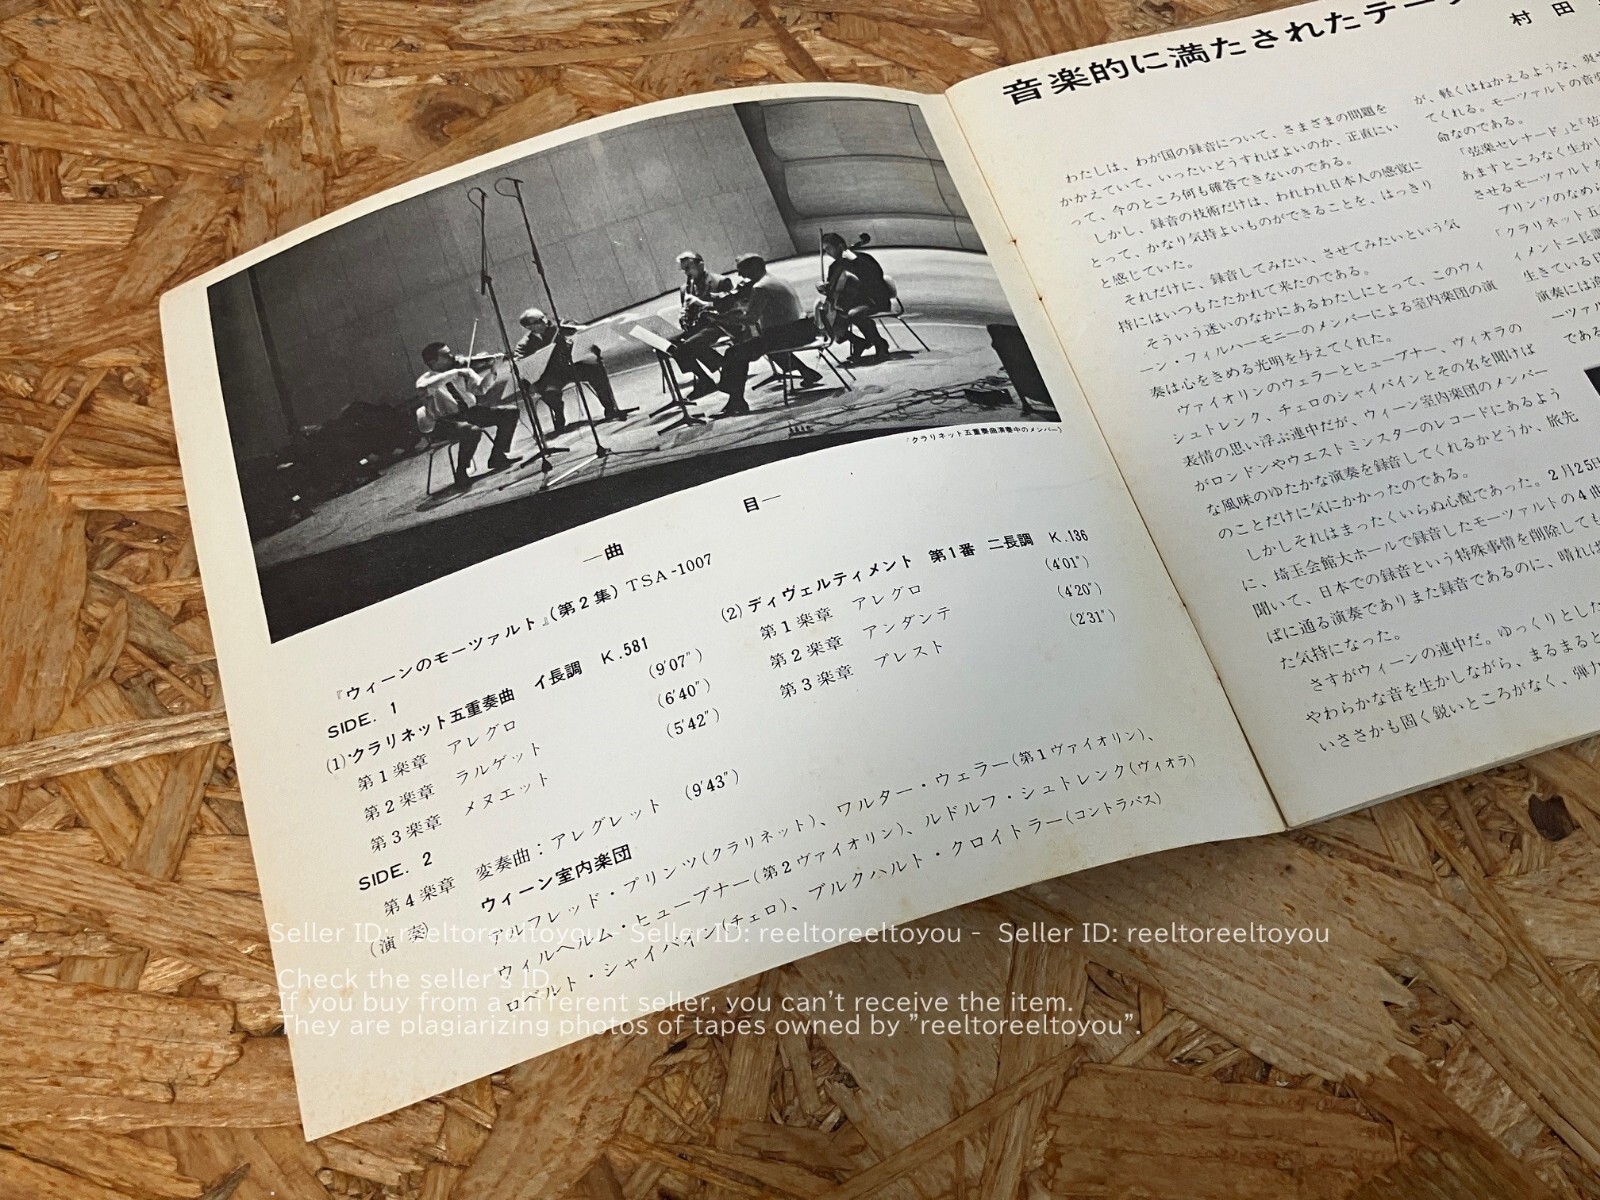 (クラリネット五重奏曲演奏中のメンバー)
―曲
目―
『ウィーンのモーツァルト』(第2集) TSA-1007
SIDE. 1
(1) クラリネット五重奏曲 イ長調 K.581
第1楽章 アレグロ (9′07″)
第2楽章 ラルゲット (6′40″)
第3楽章 メヌエット (5′42″)
SIDE. 2
第4楽章 変奏曲:アレグレット (9′43″)
(2) ディヴェルティメント 第1番 ニ長調 K.136
第1楽章 アレグロ (4′01″)
第2楽章 アンダンテ (4′20″)
第3楽章 プレスト (2′31″)
(演奏) ウィーン室内楽団
アルフレッド・プリンツ(クラリネット)、ワルター・ウェラー(第1ヴァイオリン)、
ウィルヘルム・ヒューブナー(第2ヴァイオリン)、ルドルフ・シュトレンク(ヴィオラ)
ロベルト・シャイバイン(チェロ)、ブルクハルト・クロイトラー(コントラバス)
音楽的に満たされたテープ
村田
わたしは、わが国の録音について、さまざまの問題を
かかえていて、いったいどうすればよいのか、正直にい
って、今のところ何も確答できないのである。
しかし、録音の技術だけは、われわれ日本人の感覚に
とって、かなり気持よいものができることを、はっきり
と感じていた。
それだけに、録音してみたい、させてみたいという気
持にはいつもたたかれて来たのである。
そういう迷いのなかにあるわたしにとって、このウィ
ーン・フィルハーモニーのメンバーによる室内楽団の演
奏は心をきめる光明を与えてくれた。
ヴァイオリンのウェラーとヒューブナー、ヴィオラの
シュトレンク、チェロのシャイバインとその名を聞けば
表情の思い浮ぶ連中だが、ウィーン室内楽団のメンバー
がロンドンやウエストミンスターのレコードにあるよう
な風味のゆたかな演奏を録音してくれるかどうか、旅先
のことだけに気にかかったのである。
しかしそれはまったくいらぬ心配であった。2月25日
に、埼玉会館大ホールで録音したモーツァルトの4曲
聞いて、日本での録音という特殊事情を削除しても
ばに通る演奏でありまた録音であるのに、晴れば
た気持になった。
さすがウィーンの連中だ。ゆっくりとした
やわらかな音を生かしながら、まるまると
いささかも固く鋭いところがなく、弾力
が、軽くはねかえるような、爽や
てくれる。モーツァルトの音楽
命なのである。
「弦楽セレナード」と「弦
あますところなく生かし
させるモーツァルトを
プリンツのなめら
「クラリネット五
ィメントニ長調
生きている日
演奏には適
ーツァル
である
Seller ID: reeltoreeltoyou - Seller ID: reeltoreeltoyou - Seller ID: reeltoreeltoyou
Check the seller's ID.
If you buy from a different seller, you can't receive the item.
They are plagiarizing photos of tapes owned by "reeltoreeltoyou".